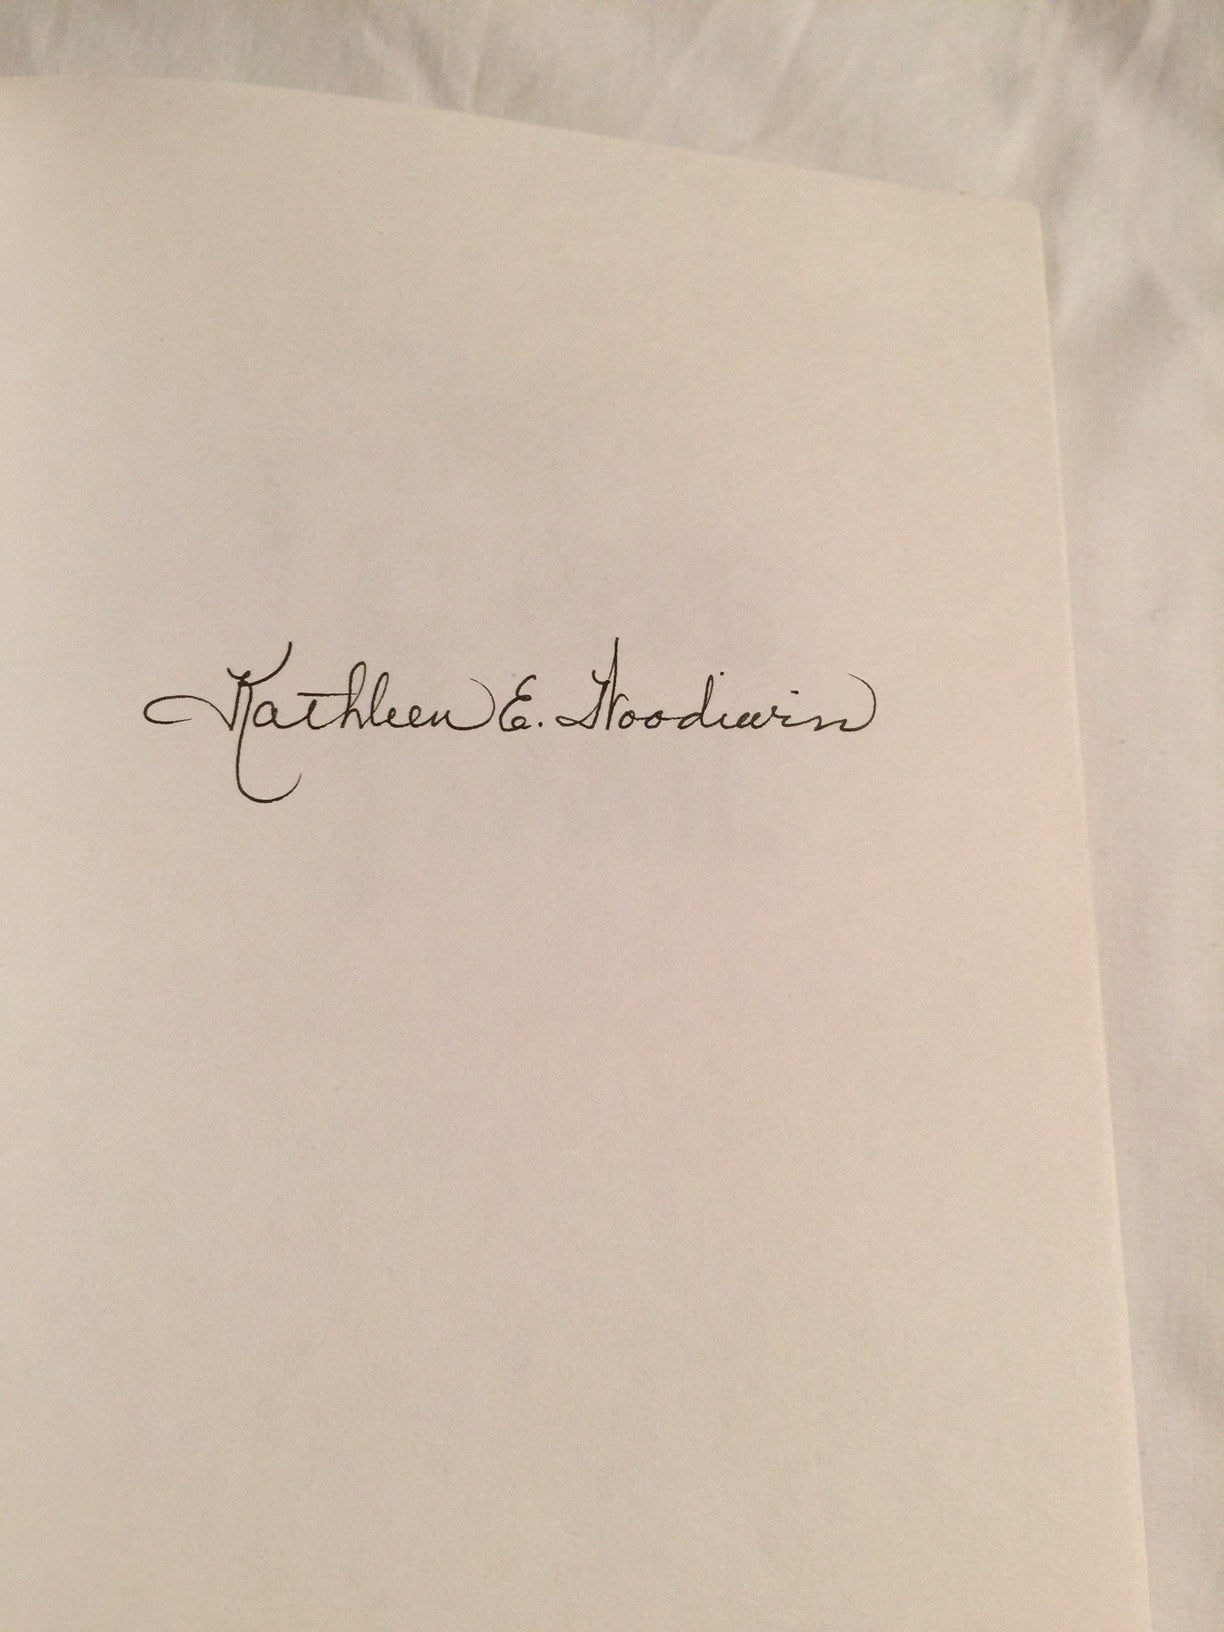 Kathleen E. Woodiwin